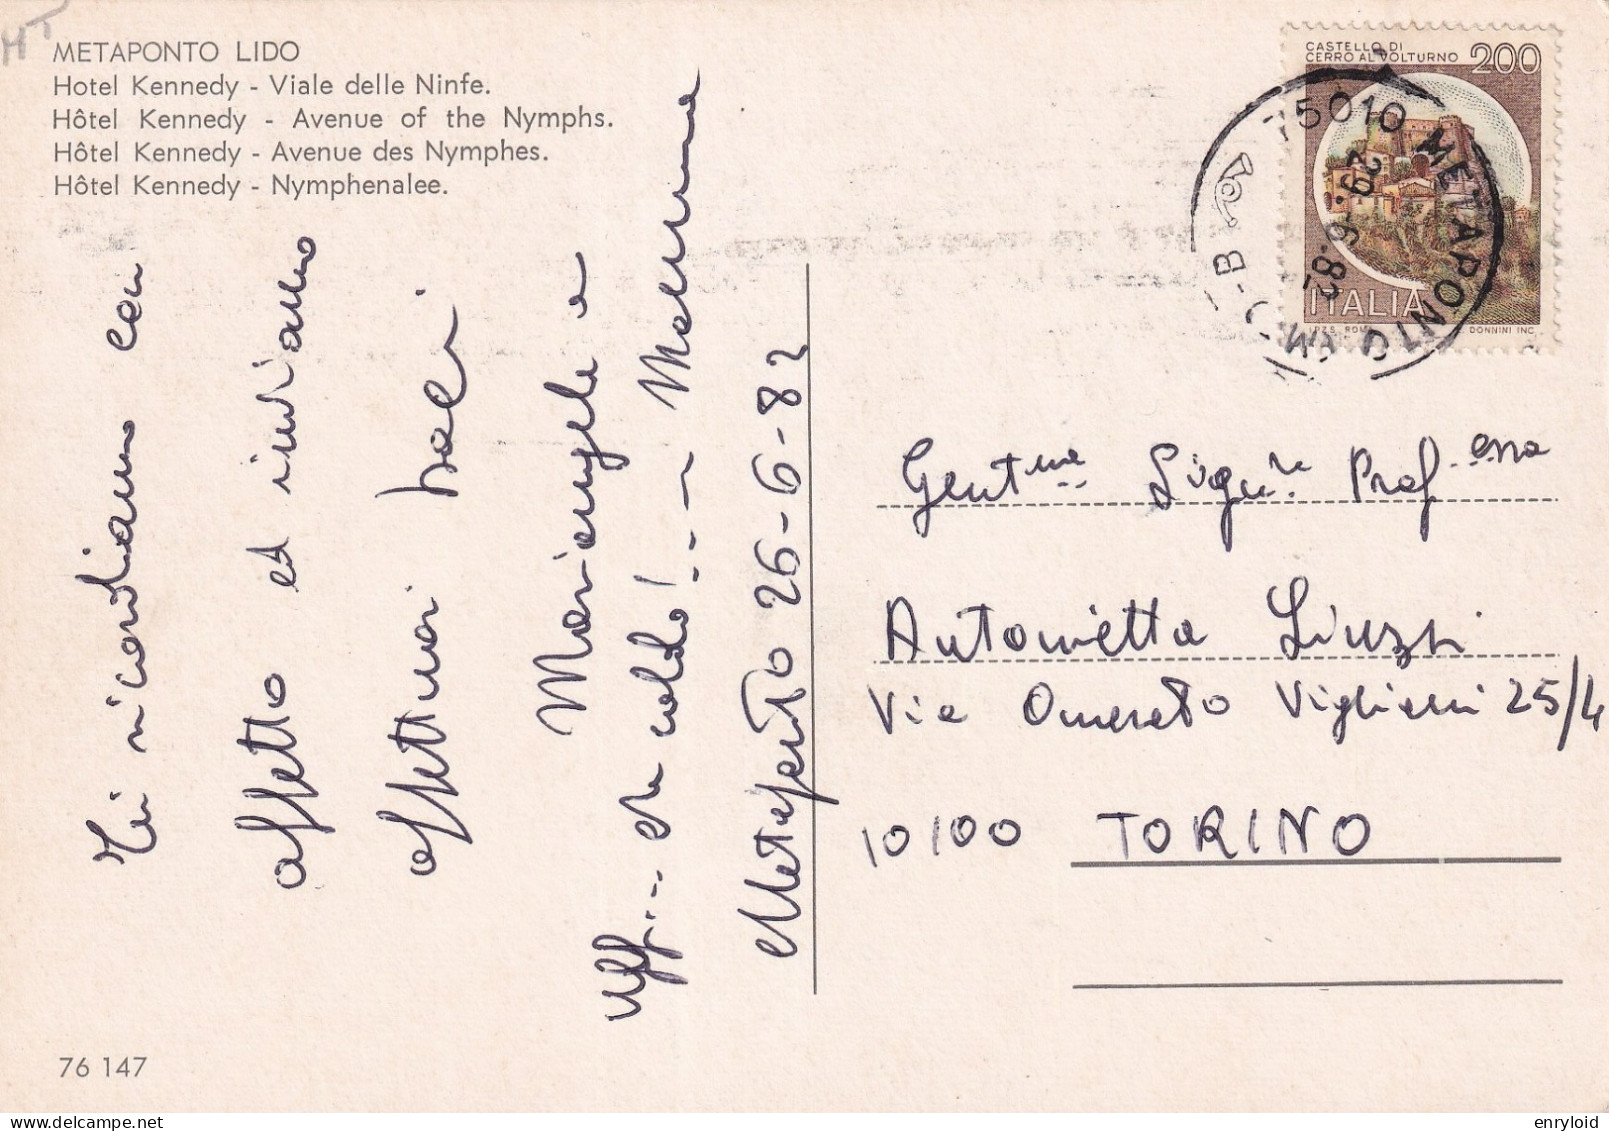 MT
METAPONTO LIDO
Hotel Kennedy - Viale delle Ninfe.
Hôtel Kennedy - Avenue of the Nymphs.
Hôtel Kennedy - Avenue des Nymphes.
Hôtel Kennedy - Nymphenalee.
CASTELLO DI
CERRO AL VOLTURNO 200
ITALIA
I.P.Z.S. ROMA DONNINI INC.
75010 METAPONTO
29-6-82
Metaponto 26-6-82
Uff... che caldo! -- Mamma
Mariangela e
affettuosi baci
affetto ed inviamo
Ti ricordiamo con
Gent.ma Sig.ra Prof.ssa
Antonietta Liuzzi
Via Omerato Vigliani 25/4
10100 TORINO
76 147
enryloid